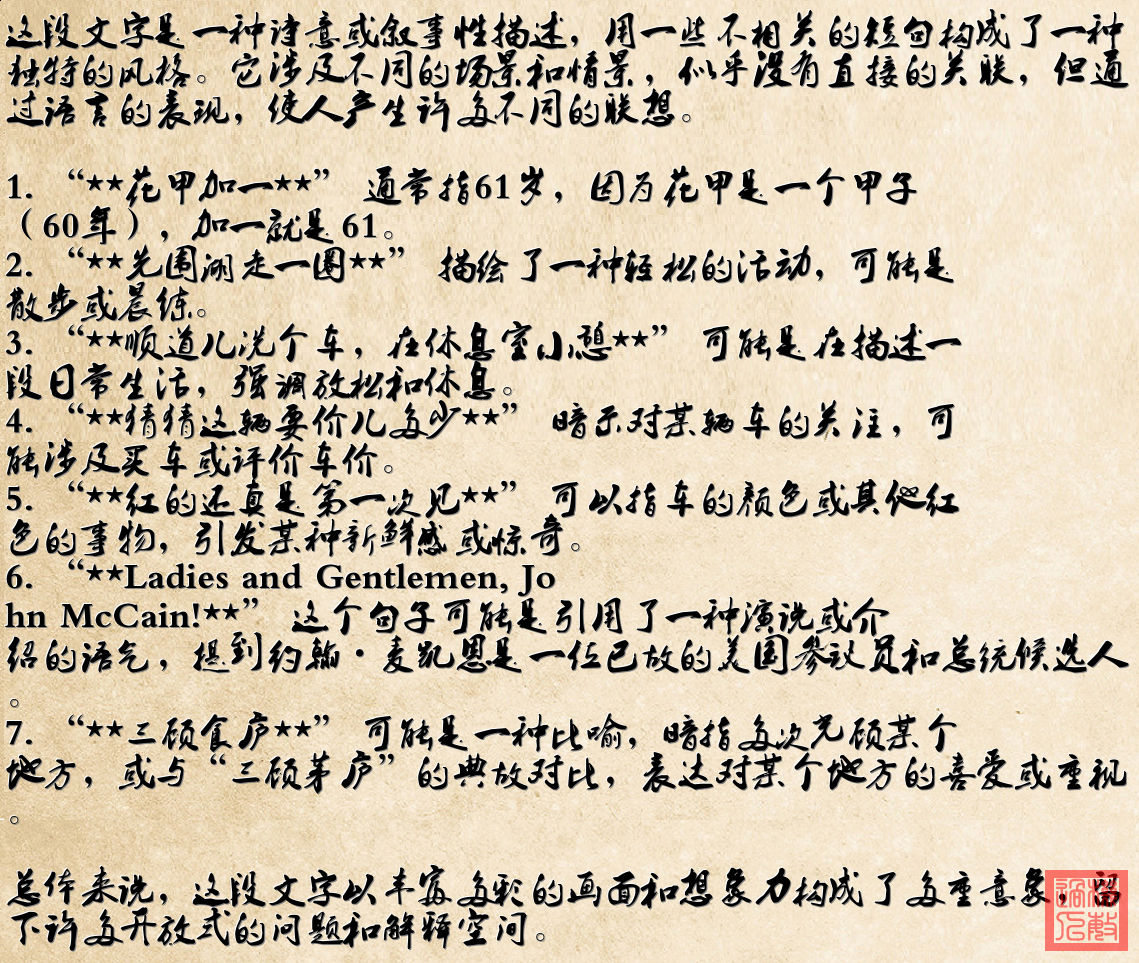 这段文字是一种诗意或叙事性描述，用一些不相关的短句构成了一种
独特的风格。它涉及不同的场景和情景，似乎没有直接的关联，但通
过语言的表现，使人产生许多不同的联想。
1. “**花甲加一**” 通常指61岁，因为花甲是一个甲子
（60年），加一就是61。
2. “**先围湖走一圈**” 描绘了一种轻松的活动，可能是
散步或晨练。
3. “**顺道儿洗个车，在休息室小憩**” 可能是在描述一
段日常生活，强调放松和休息。
4. “**猜猜这辆要价儿多少**” 暗示对某辆车的关注，可
能涉及买车或评价车价。
5. “**红的还真是第一次见**” 可以指车的颜色或其他红
色的事物，引发某种新鲜感或惊奇。
6. “**Ladies and Gentlemen, Jo
hn McCain!**” 这个句子可能是引用了一种演说或介
绍的语气，提到约翰·麦凯恩是一位已故的美国参议员和总统候选人
。
7. “**三顾食庐**” 可能是一种比喻，暗指多次光顾某个
地方，或与“三顾茅庐”的典故对比，表达对某个地方的喜爱或重视
。
总体来说，这段文字以丰富多彩的画面和想象力构成了多重意象，留
下许多开放式的问题和解释空间。